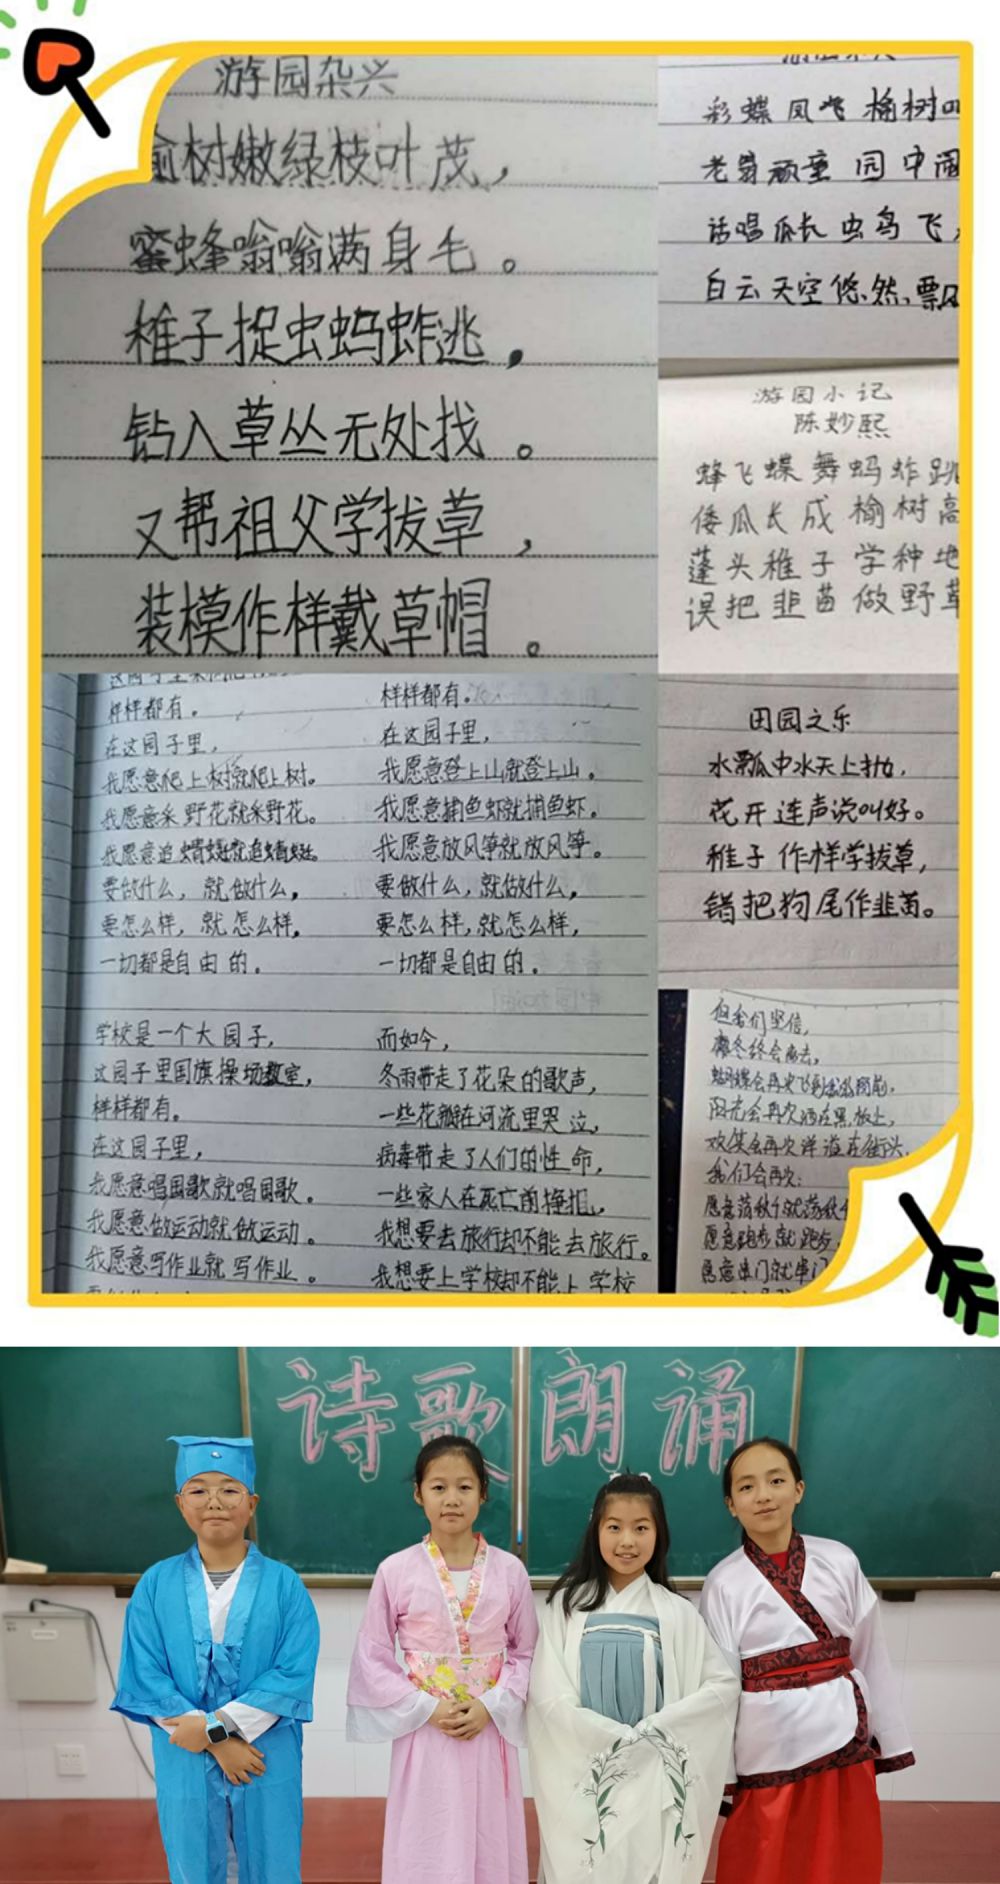 游园杂兴
榆树嫩绿枝叶茂，
蜜蜂嗡嗡满身毛。
稚子捉虫蚂蚱逃，
钻入草丛无处找。
又帮祖父学拔草，
装模作样戴草帽。
彩蝶凤飞榆树
老翁顽童园中闹
话唱瓜长虫鸟飞，
白云天空悠然飘
游园小记
陈妙熙
蜂飞蝶舞蚂蚱跳
倭瓜长成榆树高
蓬头稚子学种地
误把韭苗做野草
样样都有。
在这园子里，
我愿意爬上树就爬上树。
我愿意采野花就采野花。
我愿意追蜻蜓就追蜻蜓。
要做什么，就做什么。
要怎么样，就怎么样。
一切都是自由的。
学校是一个大园子，
这园子里国旗操场教室，
样样都有。
在这园子里，
我愿意唱国歌就唱国歌。
我愿意做运动就做运动。
我愿意写作业就写作业。
样样都有。
在这园子里，
我愿意登上山就登上山。
我愿意捕鱼虾就捕鱼虾。
我愿意放风筝就放风筝。
要做什么，就做什么。
要怎么样，就怎么样，
一切都是自由的。
而如今，
冬雨带走了花朵的歌声，
一些花瓣在河流里哭泣，
病毒带走了人们的性命，
一些家人在死亡前挣扎，
我想要去旅行却不能去旅行。
我想要上学校却不能上学校
田园之乐
水瓢中水天上抛，
花开连声说叫好。
稚子作样学拔草，
错把狗尾作韭苗。
但我们坚信，
寒冬终会离去，
蝴蝶会再次飞到
阳光会再次洒在黑板上，
欢笑会再次洋溢在街头，
我们会再次：
愿意荡秋千就荡秋千
愿意跑步就跑步，
愿意串门就串门
诗歌朗诵